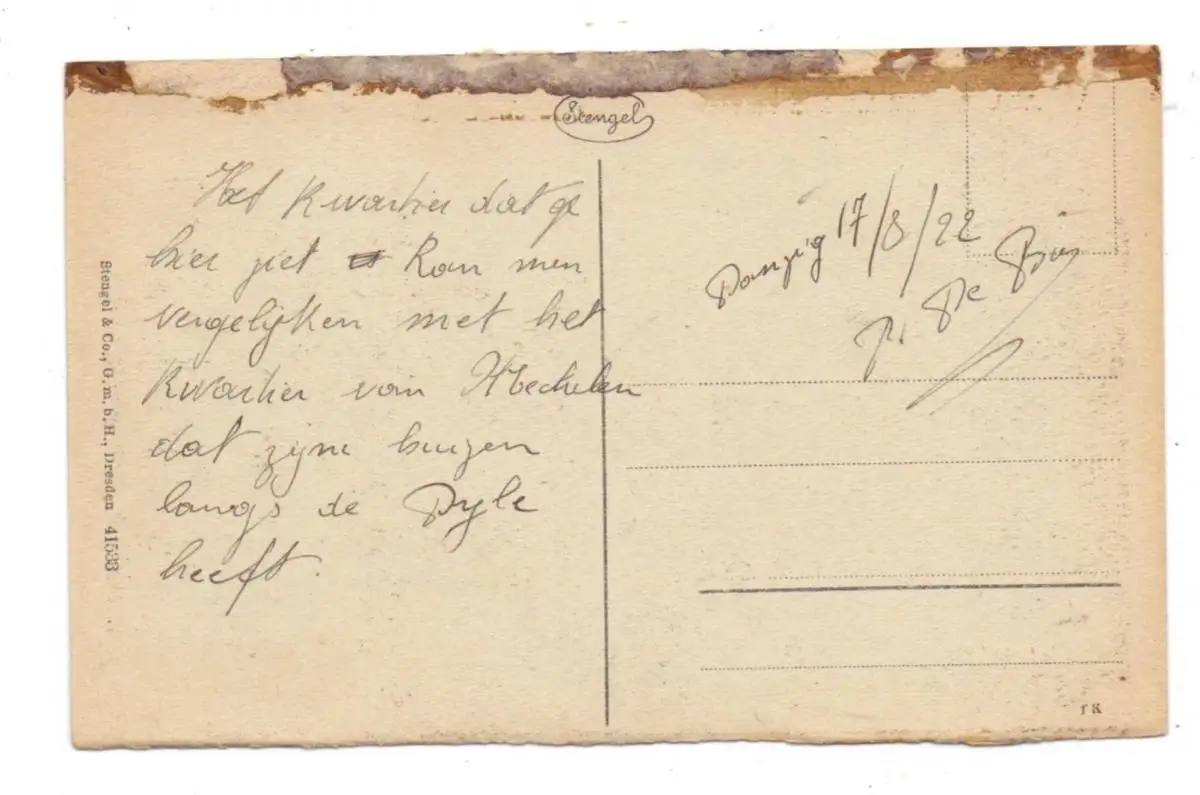 Stengel
Het kwartier dat ge
hier ziet kan men
vergelijken met het
kwartier van Mechelen
dat zijne huizen
langs de Dyle
heeft.
Danzig 17/8/22
P. De
Stengel & Co., G.m.b.H., Dresden 41593
fK